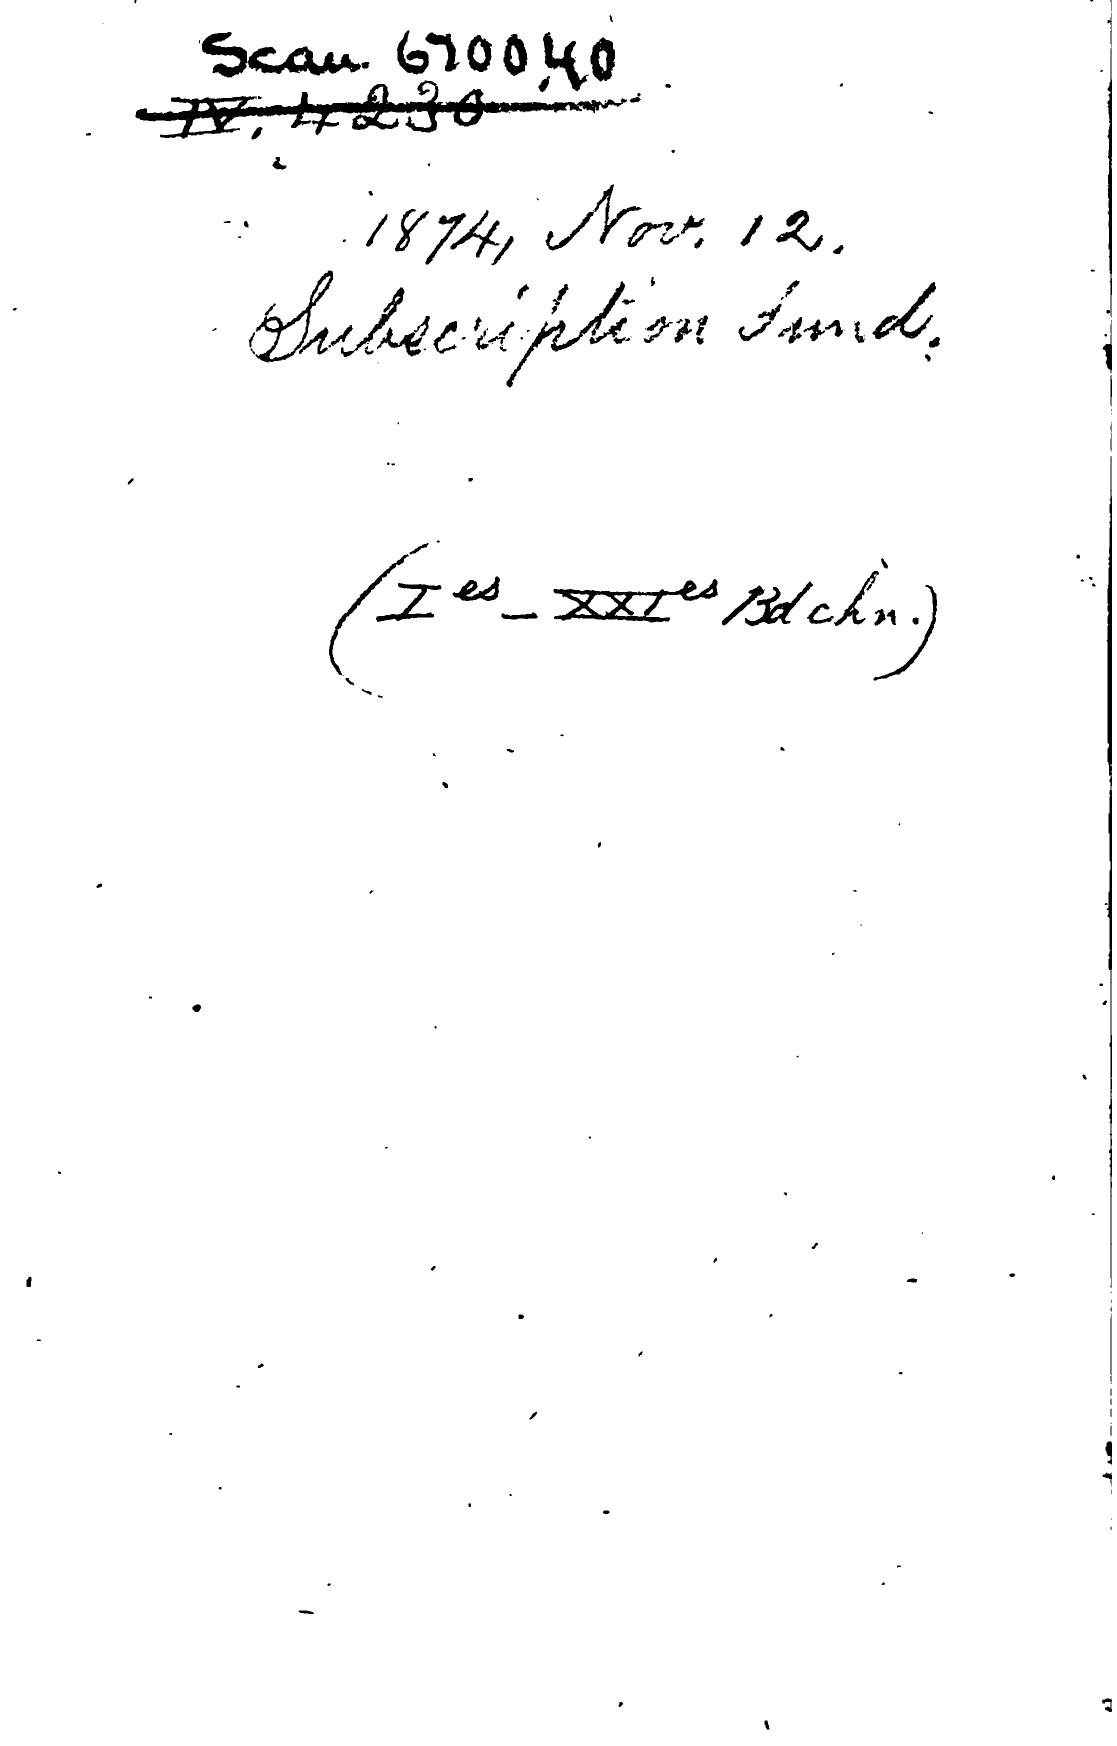 Scan 6700.40
IV. 4230
1874, Nov. 12.
Subscription Fund.
(I es – XXI es Bdchn.)